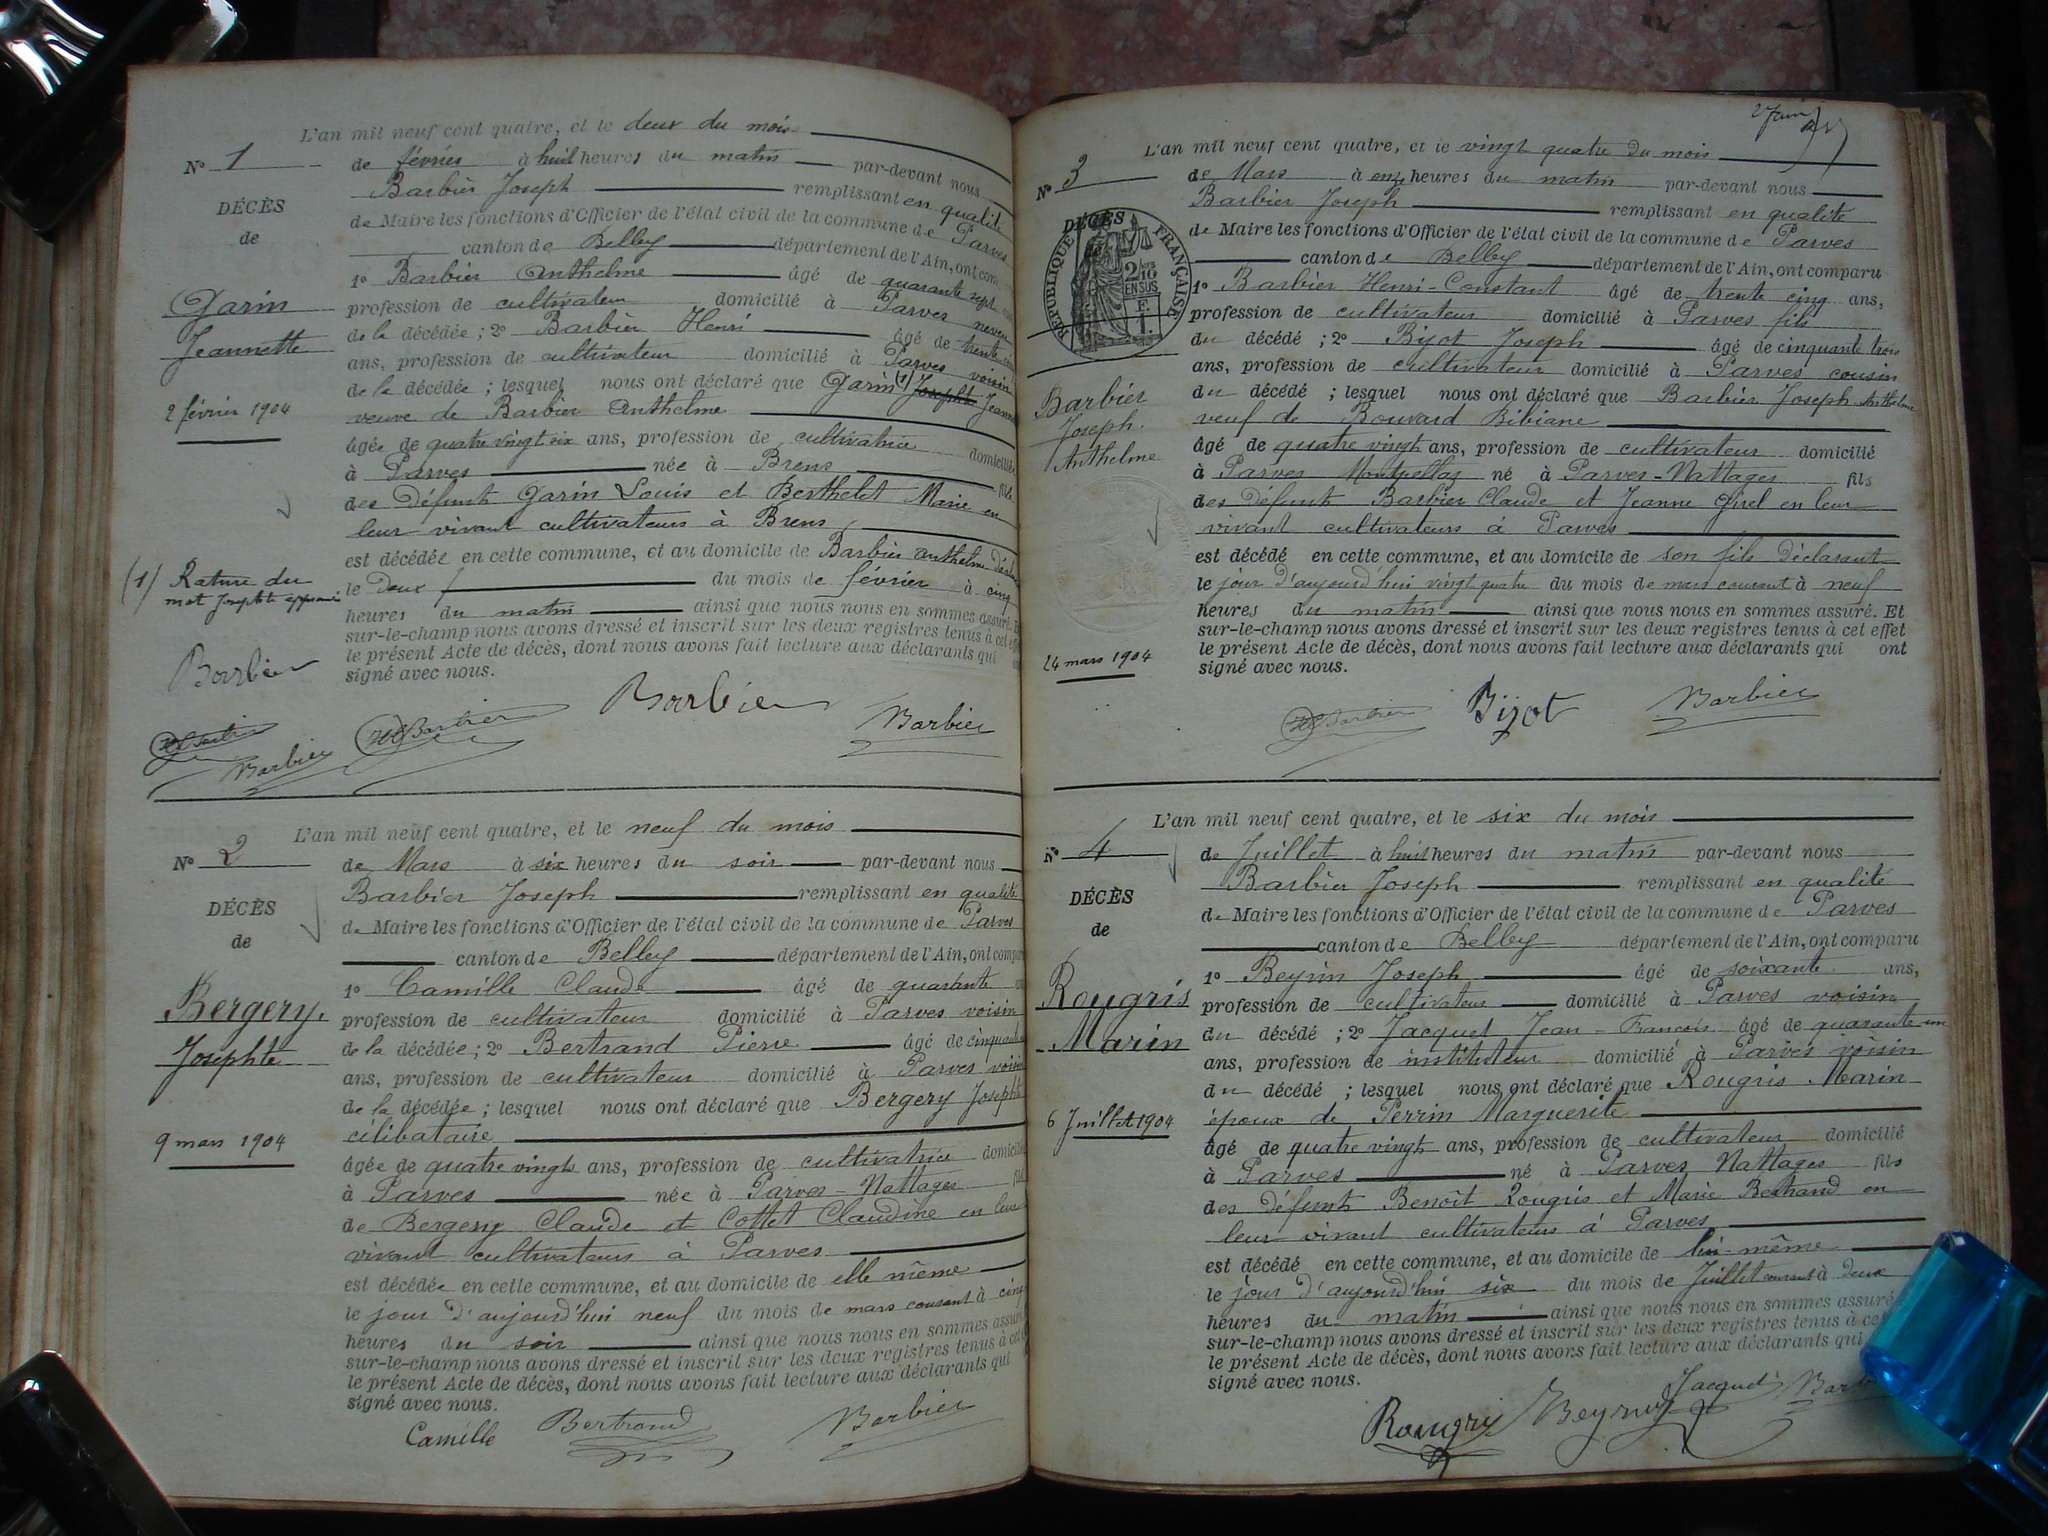 L'an mil neuf cent quatre, et le deux du mois
N° 1
de février à huit heures du matin par-devant nous
Barbier Joseph remplissant en qualité
DÉCÈS
de Maire les fonctions d'Officier de l'état civil de la commune de Parves
de
canton de Belley département de l'Ain, ont comparu
1° Barbier Anthelme âgé de quarante sept
Garin
profession de cultivateur domicilié à Parves neveu
Jeannette
de la décédée ; 2° Barbier Henri âgé de trente
ans, profession de cultivateur domicilié à Parves voisin
de la décédée ; lesquel nous ont déclaré que Garin (1) Josephte Jeannette
2 février 1904
veuve de Barbier Anthelme
âgée de quatre vingt six ans, profession de cultivatrice domiciliée
à Parves née à Brens fille
des défunts Garin Louis et Berthelet Marie en
leur vivant cultivateurs à Brens
est décédée en cette commune, et au domicile de Barbier Anthelme
(1) Rature du
mot Josephte approuvée
le Deux du mois de février à cinq
heures du matin ainsi que nous nous en sommes assuré. Et
sur-le-champ nous avons dressé et inscrit sur les deux registres tenus à cet effet
le présent Acte de décès, dont nous avons fait lecture aux déclarants qui ont
signé avec nous.
Barbier
Barbier
Barbier
HC Barbier
HC Barbier
Barbier
L'an mil neuf cent quatre, et le neuf du mois
N° 2
de Mars à six heures du soir par-devant nous
Barbier Joseph remplissant en qualité
DÉCÈS
de Maire les fonctions d'Officier de l'état civil de la commune de Parves
de
canton de Belley département de l'Ain, ont comparu
1° Camille Claude âgé de quarante
Bergery
profession de cultivateur domicilié à Parves voisin
Josephte
de la décédée ; 2° Bertrand Pierre âgé de cinquante
ans, profession de cultivateur domicilié à Parves voisin
de la décédée ; lesquel nous ont déclaré que Bergery Josephte
9 mars 1904
célibataire
âgée de quatre vingts ans, profession de cultivatrice domiciliée
à Parves née à Parves-Nattages fille
de Bergery Claude et Cottet Claudine en leur
vivant cultivateurs à Parves
est décédée en cette commune, et au domicile de elle même
le jour d'aujourd'hui neuf du mois de mars courant à cinq
heures du soir ainsi que nous nous en sommes assuré
sur-le-champ nous avons dressé et inscrit sur les deux registres tenus à cet
le présent Acte de décès, dont nous avons fait lecture aux déclarants qui
signé avec nous.
Camille Bertrand Barbier
2 Juin
L'an mil neuf cent quatre, et le vingt quatre du mois
N° 3
de Mars à onze heures du matin par-devant nous
Barbier Joseph remplissant en qualité
DÉCÈS
RÉPUBLIQUE FRANÇAISE
2/10
EN SUS
F.
1.
de Maire les fonctions d'Officier de l'état civil de la commune de Parves
canton de Belley département de l'Ain, ont comparu
1° Barbier Henri-Constant âgé de trente cinq ans,
profession de cultivateur domicilié à Parves fils
du décédé ; 2° Bijot Joseph âgé de cinquante trois
ans, profession de cultivateur domicilié à Parves cousin
Barbier
Joseph
Anthelme
du décédé ; lesquel nous ont déclaré que Barbier Joseph Anthelme
veuf de Bouvard Bibiane
âgé de quatre vingt ans, profession de cultivateur domicilié
à Parves Montpellaz né à Parves-Nattages fils
des défunts Barbier Claude et Jeanne Girel en leur
vivant cultivateurs à Parves
est décédé en cette commune, et au domicile de son fils déclarant
le jour d'aujourd'hui vingt quatre du mois de mars courant à neuf
heures du matin ainsi que nous nous en sommes assuré. Et
sur-le-champ nous avons dressé et inscrit sur les deux registres tenus à cet effet
le présent Acte de décès, dont nous avons fait lecture aux déclarants qui ont
signé avec nous.
24 mars 1904
HC Barbier Bijot Barbier
L'an mil neuf cent quatre, et le six du mois
N° 4
de Juillet à huit heures du matin par-devant nous
Barbier Joseph remplissant en qualité
DÉCÈS
de Maire les fonctions d'Officier de l'état civil de la commune de Parves
de
canton de Belley département de l'Ain, ont comparu
1° Beyrin Joseph âgé de soixante ans,
Rougris
profession de cultivateur domicilié à Parves voisin
Marin
du décédé ; 2° Jacquet Jean-François âgé de quarante-un
ans, profession de instituteur domicilié à Parves voisin
du décédé ; lesquel nous ont déclaré que Rougris Marin
6 Juillet 1904
époux de Perrin Marguerite
âgé de quatre vingt ans, profession de cultivateur domicilié
à Parves né à Parves Nattages fils
des défunts Benoît Rougris et Marie Bertrand en
leur vivant cultivateurs à Parves
est décédé en cette commune, et au domicile de lui-même
le jour d'aujourd'hui six du mois de Juillet courant à deux
heures du matin ainsi que nous nous en sommes assuré
sur-le-champ nous avons dressé et inscrit sur les deux registres tenus à cet
le présent Acte de décès, dont nous avons fait lecture aux déclarants qui
signé avec nous.
Rougris Beyrin Jacquet Barbier